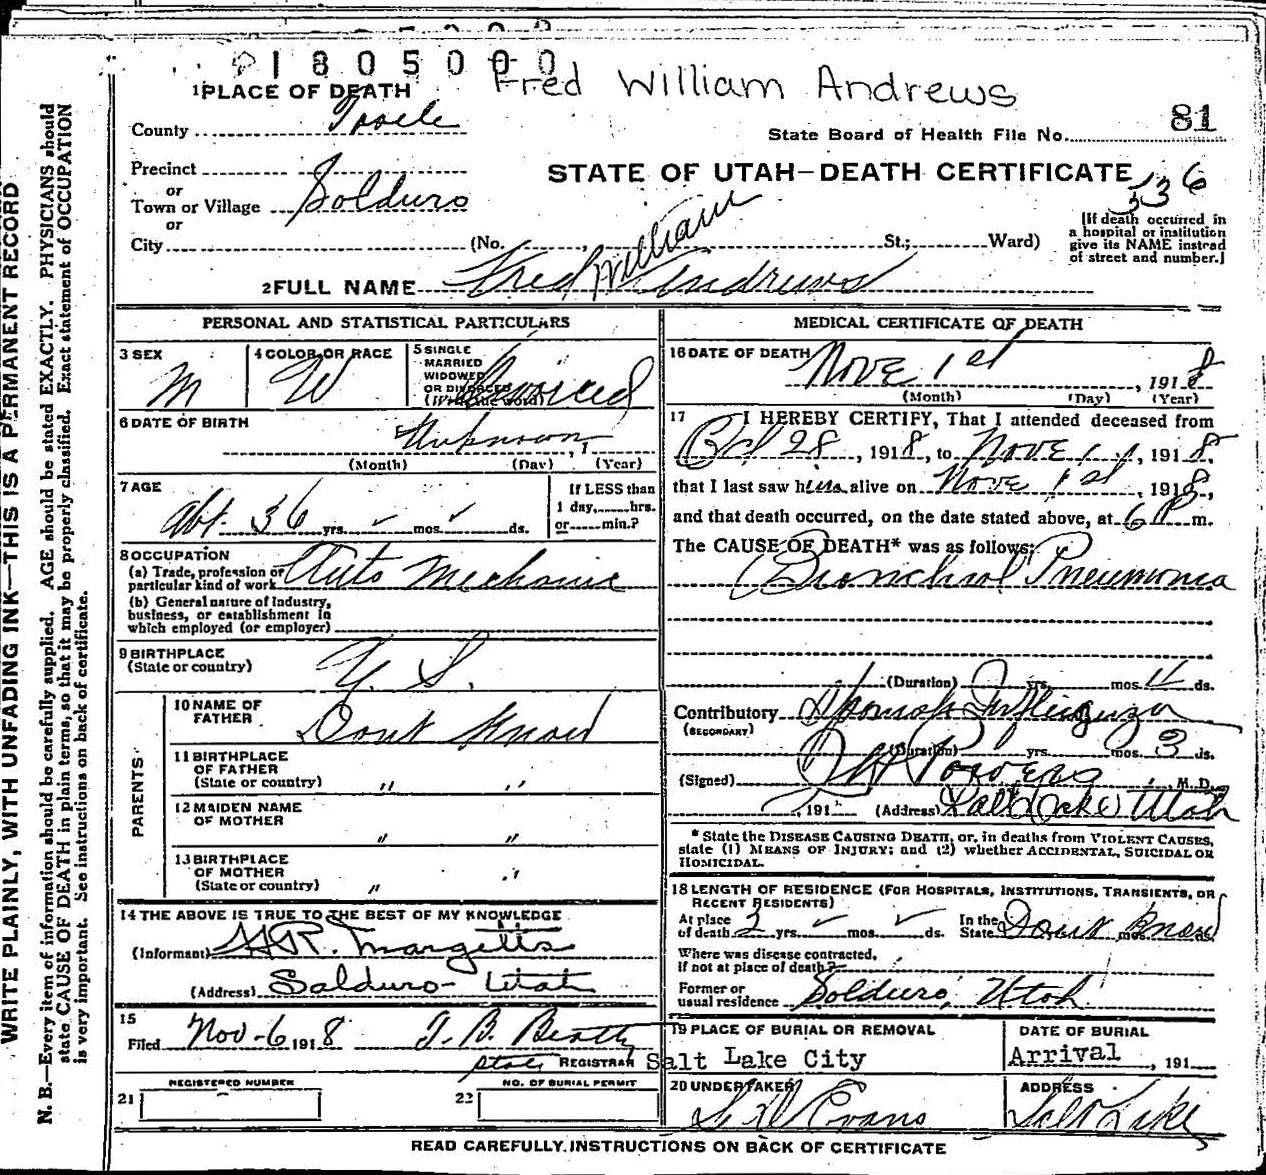 1805000
Fred William Andrews
1 PLACE OF DEATH
County Tooele
State Board of Health File No. 81
Precinct
STATE OF UTAH—DEATH CERTIFICATE
336
or
Town or Village Salduro
or
City (No. , St.; Ward)
[If death occurred in a hospital or institution give its NAME instead of street and number.]
William
2 FULL NAME Fred W Andrews
PERSONAL AND STATISTICAL PARTICULARS
3 SEX M
4 COLOR OR RACE W
5 SINGLE MARRIED WIDOWED OR DIVORCED (Write the word) Divorced
6 DATE OF BIRTH Unknown , 1
(Month) (Day) (Year)
7 AGE Abt. 36 yrs. ✓ mos. ✓ ds.
If LESS than 1 day, hrs. or min.?
8 OCCUPATION
(a) Trade, profession or particular kind of work Auto Mechanic
(b) General nature of industry, business, or establishment in which employed (or employer)
9 BIRTHPLACE (State or country) U. S.
PARENTS
10 NAME OF FATHER Dont Know
11 BIRTHPLACE OF FATHER (State or country) " "
12 MAIDEN NAME OF MOTHER " "
13 BIRTHPLACE OF MOTHER (State or country) " "
14 THE ABOVE IS TRUE TO THE BEST OF MY KNOWLEDGE
(Informant) H.R. Margetts
(Address) Salduro- Utah
15
Filed Nov-6 1918 T. B. Beatty
State REGISTRAR
REGISTERED NUMBER
21
NO. OF BURIAL PERMIT
22
MEDICAL CERTIFICATE OF DEATH
16 DATE OF DEATH Nove 1st , 1918
(Month) (Day) (Year)
17 I HEREBY CERTIFY, That I attended deceased from
Oct 28 , 1918, to Nove 1 , 1918,
that I last saw him alive on Nove 1st , 1918,
and that death occurred, on the date stated above, at 6 P m.
The CAUSE OF DEATH* was as follows:
Bronchial Pneumonia
(Duration) yrs. mos. 4 ds.
Contributory Spanish Influenza
(SECONDARY)
(Duration) yrs. mos. 3 ds.
(Signed) Powers , M. D.
, 191 (Address) Salt Lake Utah
* State the DISEASE CAUSING DEATH, or, in deaths from VIOLENT CAUSES, state (1) MEANS OF INJURY; and (2) whether ACCIDENTAL, SUICIDAL OR HOMICIDAL.
18 LENGTH OF RESIDENCE (FOR HOSPITALS, INSTITUTIONS, TRANSIENTS, OR RECENT RESIDENTS)
At place of death 2 yrs. ✓ mos. ✓ ds. In the State Dont Know
Where was disease contracted, if not at place of death?
Former or usual residence Salduro, Utah
19 PLACE OF BURIAL OR REMOVAL
Salt Lake City
DATE OF BURIAL
Arrival , 191
20 UNDERTAKER
Evans
ADDRESS
Salt Lake
READ CAREFULLY INSTRUCTIONS ON BACK OF CERTIFICATE
WRITE PLAINLY, WITH UNFADING INK—THIS IS A PERMANENT RECORD
N. B.—Every item of information should be carefully supplied. AGE should be stated EXACTLY. PHYSICIANS should
state CAUSE OF DEATH in plain terms, so that it may be properly classified. Exact statement of OCCUPATION
is very important. See instructions on back of certificate.